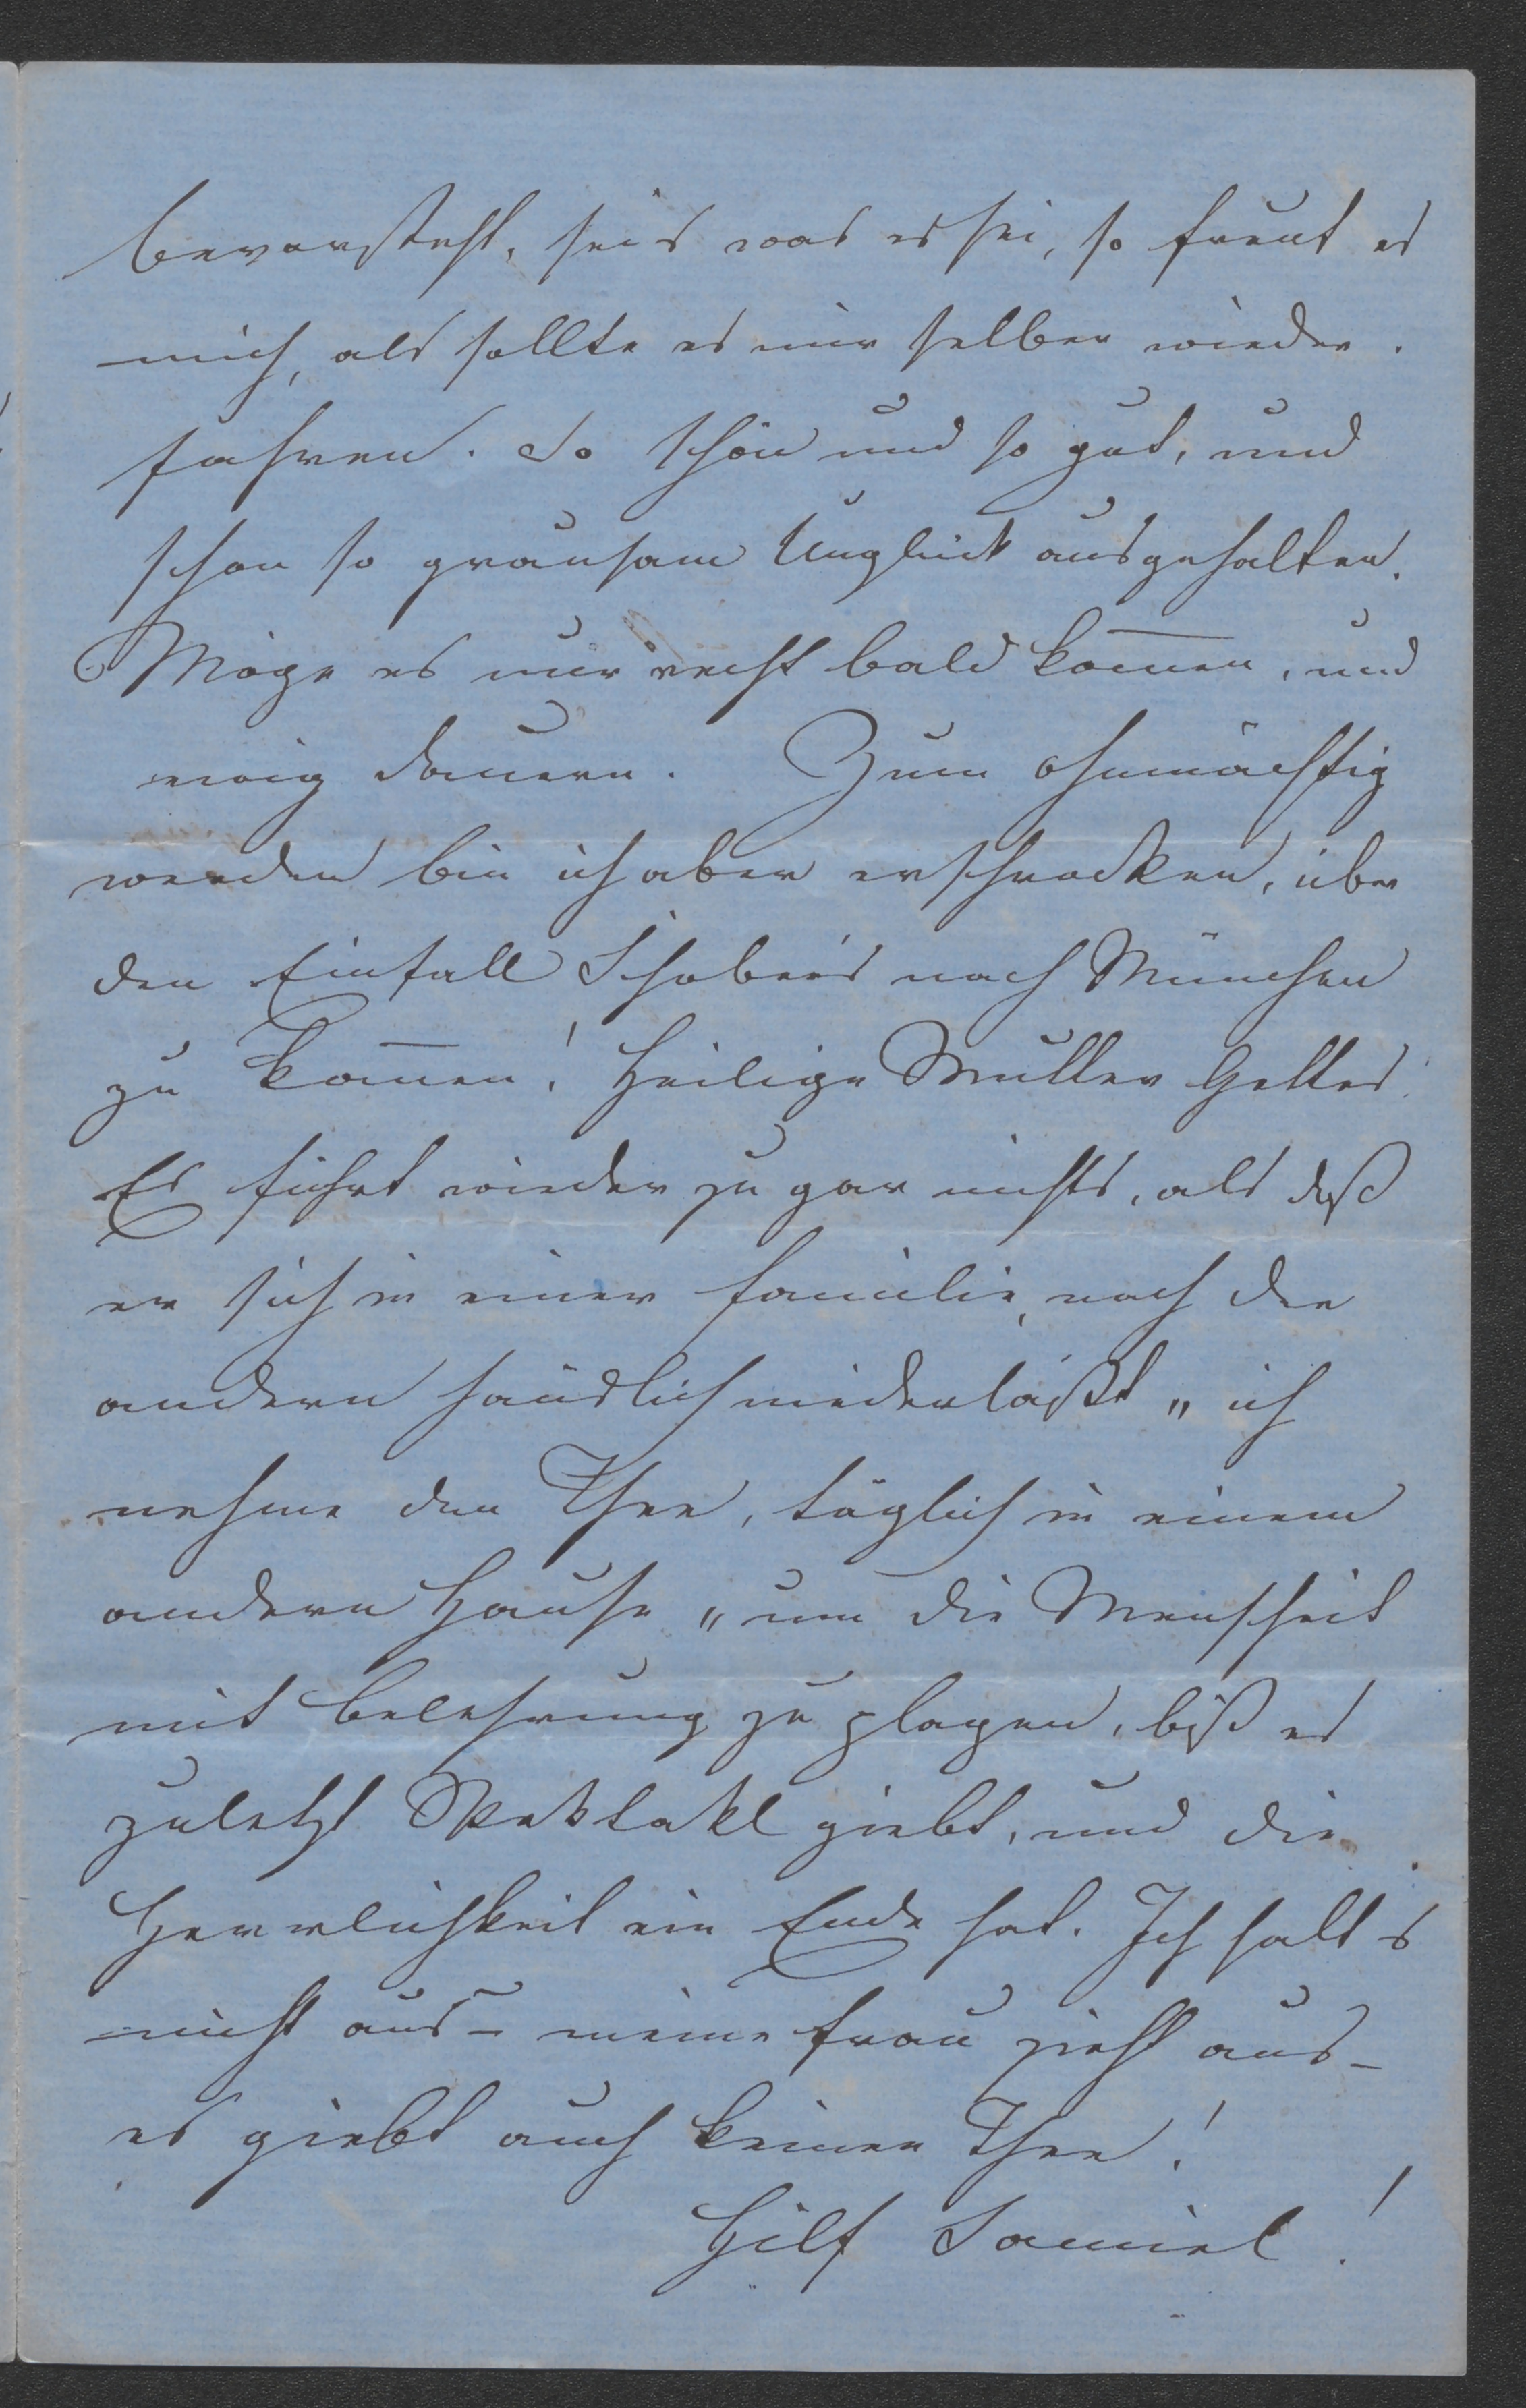 bevorsteht, sei's was es sei, so freut es
mich, als sollte es mir selber wieder.
fahren. So schön und so gut, und
schon so grausam Unglück ausgehalten.
Möge es nur recht bald kom̅en, und
ewig dauern. Zum ohnmächtig
werden bin ich aber erschrocken, über
den Einfall Schober's nach München
zu kom̅en! Heilige Mutter Gottes!
Es führt wieder zu gar nichts, als daß
er sich in einer Familie, nach der
andern häuslich niederläßt „ich
nehme den Thee, täglich in einem
andern Hause„ um die Menschheit
mit Belehrung zu plagen, biß es
zuletzt Spektakl giebt, und die
Herrlichkeit ein Ende hat. Ich halt s
nicht aus – meine Frau zieht aus –
es giebt auch keinen Thee!
Hilf Samiel!